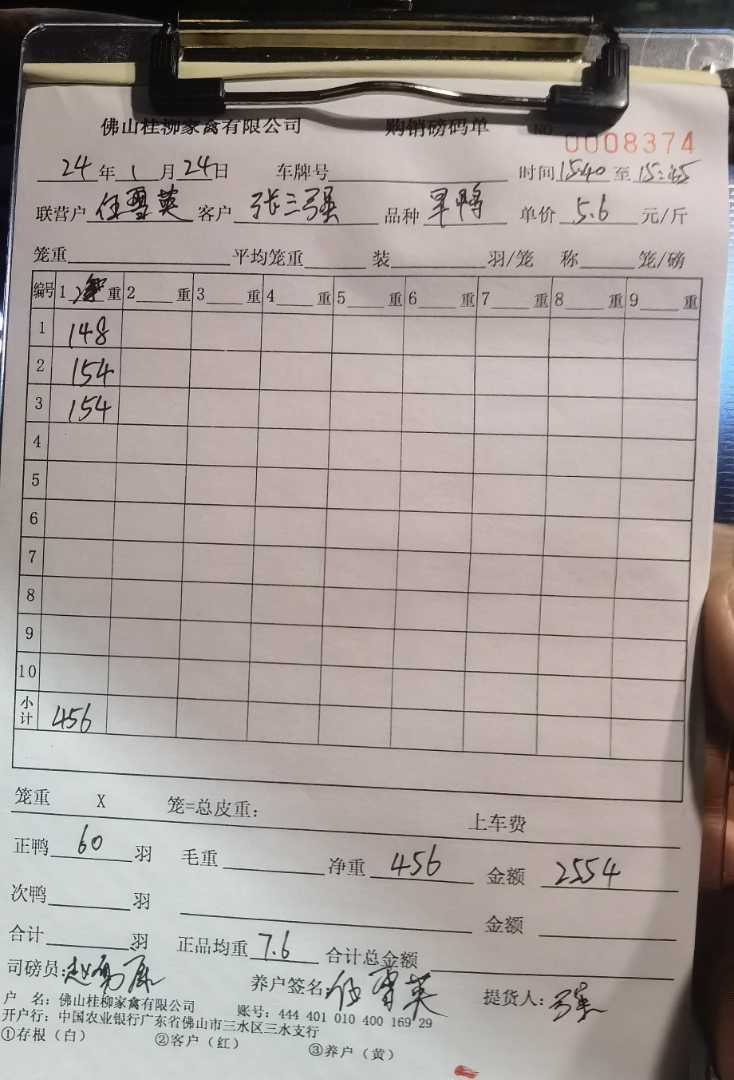 佛山桂柳家禽有限公司 购销磅码单 NO 0008374
24年1月24日 车牌号 时间15:40至15:45
联营户 任雪英 客户 张三强 品种 旱鸭 单价 5.6 元/斤
笼重 平均笼重 装 羽/笼 称 笼/磅
编号 1 净重 2 重 3 重 4 重 5 重 6 重 7 重 8 重 9 重
1 148
2 154
3 154
4
5
6
7
8
9
10
小计 456
笼重 X 笼=总皮重: 上车费
正鸭 60 羽 毛重 净重 456 金额 2554
次鸭 羽 金额
合计 羽 正品均重 7.6 合计总金额
司磅员: 养户签名: 任雪英 提货人: 强
户 名: 佛山桂柳家禽有限公司 账号: 444 401 010 400 169 29
开户行: 中国农业银行广东省佛山市三水区三水支行
①存根（白） ②客户（红） ③养户（黄）